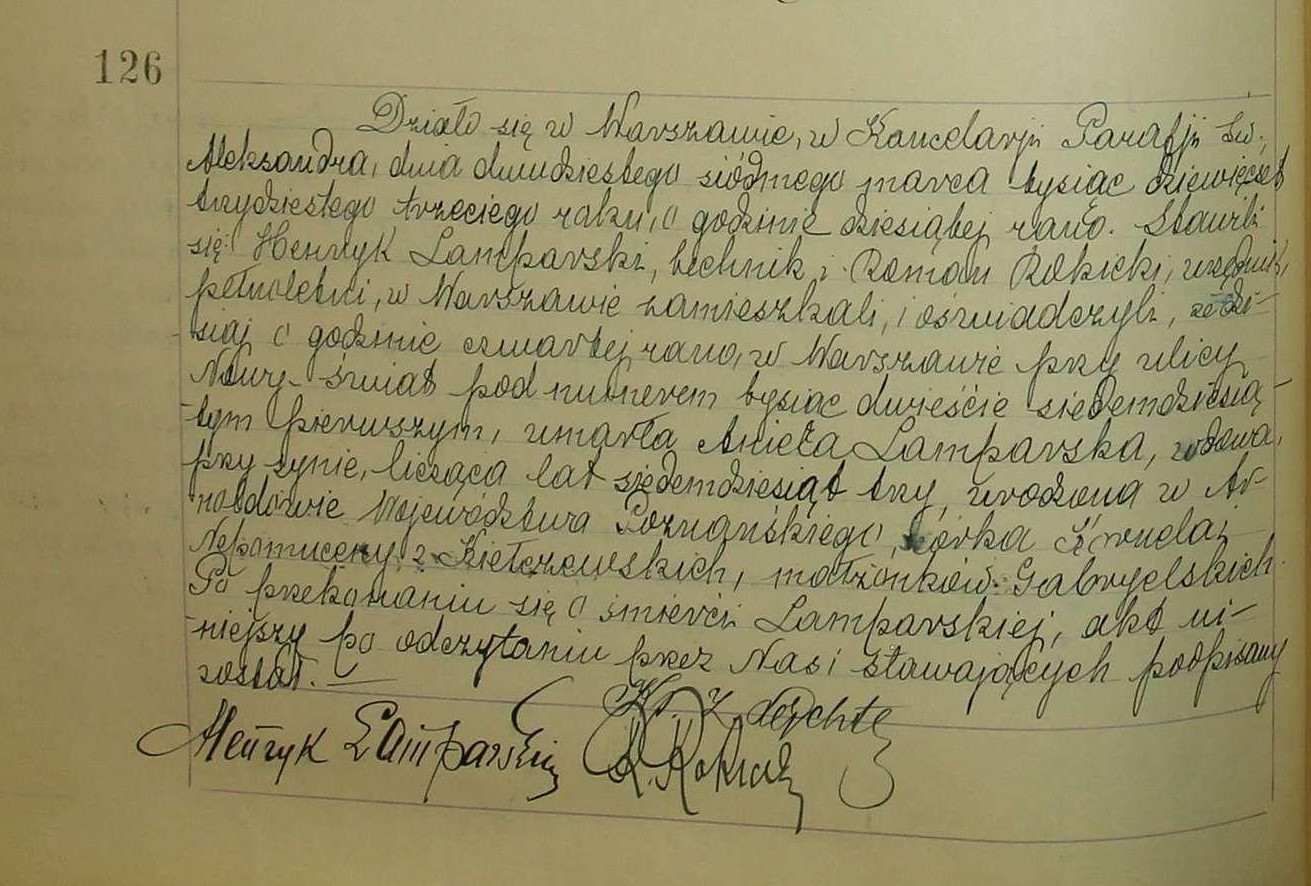 126
Działo się w Warszawie, w Kancelarji Parafji Św.
Aleksandra, dnia dwudziestego siódmego marca tysiąc dziewięćset
trzydziestego trzeciego roku, o godzinie dziesiątej rano. Stawili
się: Henryk Lamparski, technik, i Roman Rokicki, urzędnik,
pełnoletni, w Warszawie zamieszkali, i oświadczyli, że dzi-
siaj o godzinie czwartej rano, w Warszawie przy ulicy
Nowy-Świat pod numerem tysiąc dwieście siedemdziesią-
tym pierwszym, umarła Aniela Lamparska, wdowa,
przy synie, licząca lat siedemdziesiąt trzy, urodzona w Ar-
noldowie Województwa Poznańskiego, córka
Nepomuceny z Kiełczewskich, małżonków Gabryelskich.
Po przekonaniu się o śmierci Lamparskiej, akt ni-
niejszy po odczytaniu przez Nas i stawających podpisany
został.
Ks. Z.
Henryk Lamparski R. Rokicki